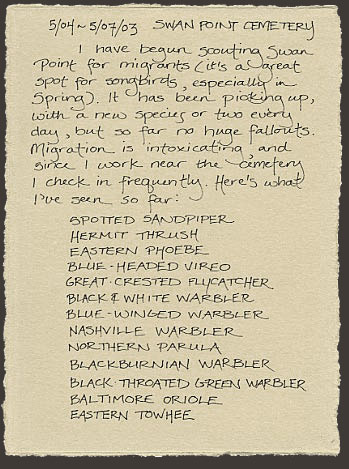 5/04~5/07/03 SWAN POINT CEMETERY
I have begun scouting Swan
Point for migrants (it's a great
spot for songbirds, especially in
Spring). It has been picking up,
with a new species or two every
day, but so far no huge fallouts.
Migration is intoxicating, and
since I work near the cemetery
I check in frequently. Here's what
I've seen so far:
SPOTTED SANDPIPER
HERMIT THRUSH
EASTERN PHOEBE
BLUE-HEADED VIREO
GREAT-CRESTED FLYCATCHER
BLACK & WHITE WARBLER
BLUE-WINGED WARBLER
NASHVILLE WARBLER
NORTHERN PARULA
BLACKBURNIAN WARBLER
BLACK-THROATED GREEN WARBLER
BALTIMORE ORIOLE
EASTERN TOWHEE